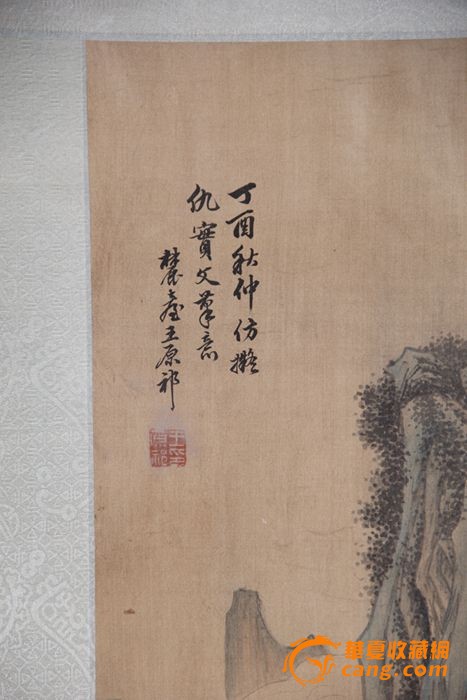 丁酉秋仲仿擬
仇實父筆意
麓臺王原祁
王原祁印
華夏收藏網
cang.com